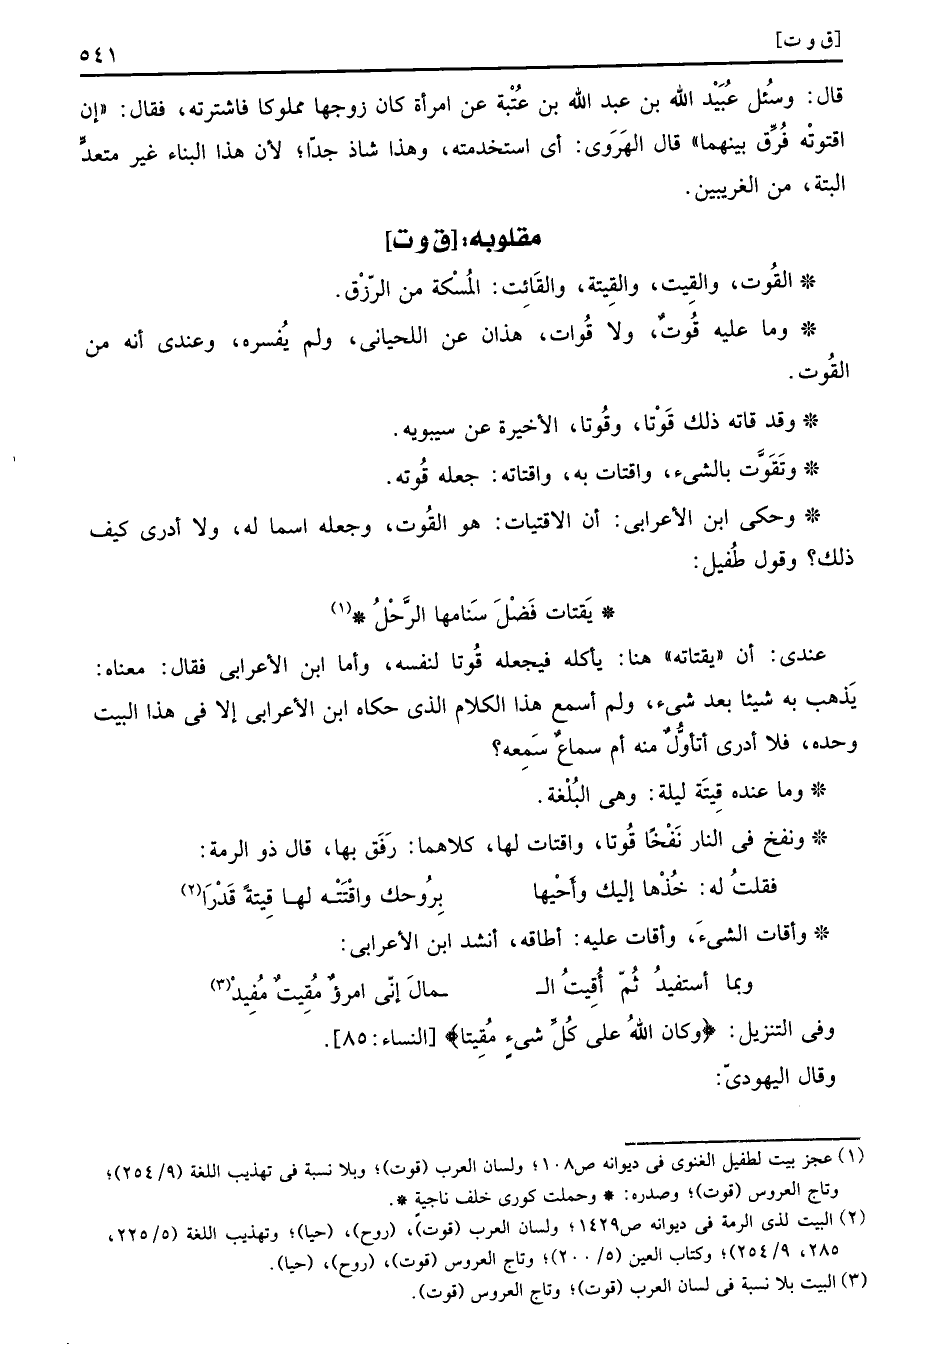 [ق و ت]
٥٤١
قال: وسُئل عُبَيْد الله بن عبد الله بن عتْبة عن امرأة كان زوجها مملوكا فاشترته، فقال: «إن
اقتوتْه فُرِّق بينهما» قال الهَرَوى: أى استخدمته، وهذا شاذ جدّا؛ لأن هذا البناء غير متعدٍّ
البتة، من الغريبين.
مقلوبه: [ق و ت]
* القُوت، والقِيت، والقِيتة، والقَائِت: المُسْكة من الرّزْق.
* وما عليه قُوتٌ، ولا قُوات، هذان عن اللحيانى، ولم يُفسره، وعندى أنه من
القُوت.
* وقد قاته ذلك قَوْتا، وقُوتا، الأخيرة عن سيبويه.
* وتَقَوَّت بالشىء، واقتات به، واقتاته: جعله قُوته.
* وحكى ابن الأعرابى: أن الاقتيات: هو القُوت، وجعله اسما له، ولا أدرى كيف
ذلك؟ وقول طُفيل:
* يَقتات فَضْلَ سَنامها الرَّحْلُ *(١)
عندى: أن «يقتاته» هنا: يأكله فيجعله قُوتا لنفسه، وأما ابن الأعرابى فقال: معناه:
يَذهب به شيئا بعد شىء، ولم أسمع هذا الكلام الذى حكاه ابن الأعرابى إلا فى هذا البيت
وحده، فلا أدرى أتأوُّلٌ منه أم سماعٌ سَمِعه؟
* وما عنده قِيتَة ليلة: وهى البُلْغة.
* ونفخ فى النار نَفْخًا قُوتا، واقتات لها، كلاهما: رَفَق بها، قال ذو الرمة:
فقلتُ له: خُذْها إليك وأَحْيها بِرُوحك واقْتَتْه لها قِيتةً قَدْرَا(٢)
* وأقات الشىءَ، وأقات عليه: أطاقه، أنشد ابن الأعرابى:
وبما أستفيدُ ثُمّ أُقيتُ الـ ـمالَ إنّى امرؤٌ مُقيتٌ مُفيدْ(٣)
وفى التنزيل: ﴿وكان اللهُ على كُلِّ شىءٍ مُقِيتا﴾ [النساء: ٨٥].
وقال اليهودىّ:
(١) عجز بيت لطفيل الغنوى فى ديوانه ص١٠٨؛ ولسان العرب (قوت)؛ وبلا نسبة فى تهذيب اللغة (٩/ ٢٥٤)؛
وتاج العروس (قوت)؛ وصدره: * وحملت كورى خلف ناجية *.
(٢) البيت لذى الرمة فى ديوانه ص١٤٢٩؛ ولسان العرب (قوت)، (روح)، (حيا)؛ وتهذيب اللغة (٥/ ٢٢٥،
٢٨٥، ٩/ ٢٥٤)؛ وكتاب العين (٥/ ٢٠٠)؛ وتاج العروس (قوت)، (روح)، (حيا).
(٣) البيت بلا نسبة فى لسان العرب (قوت)؛ وتاج العروس (قوت).